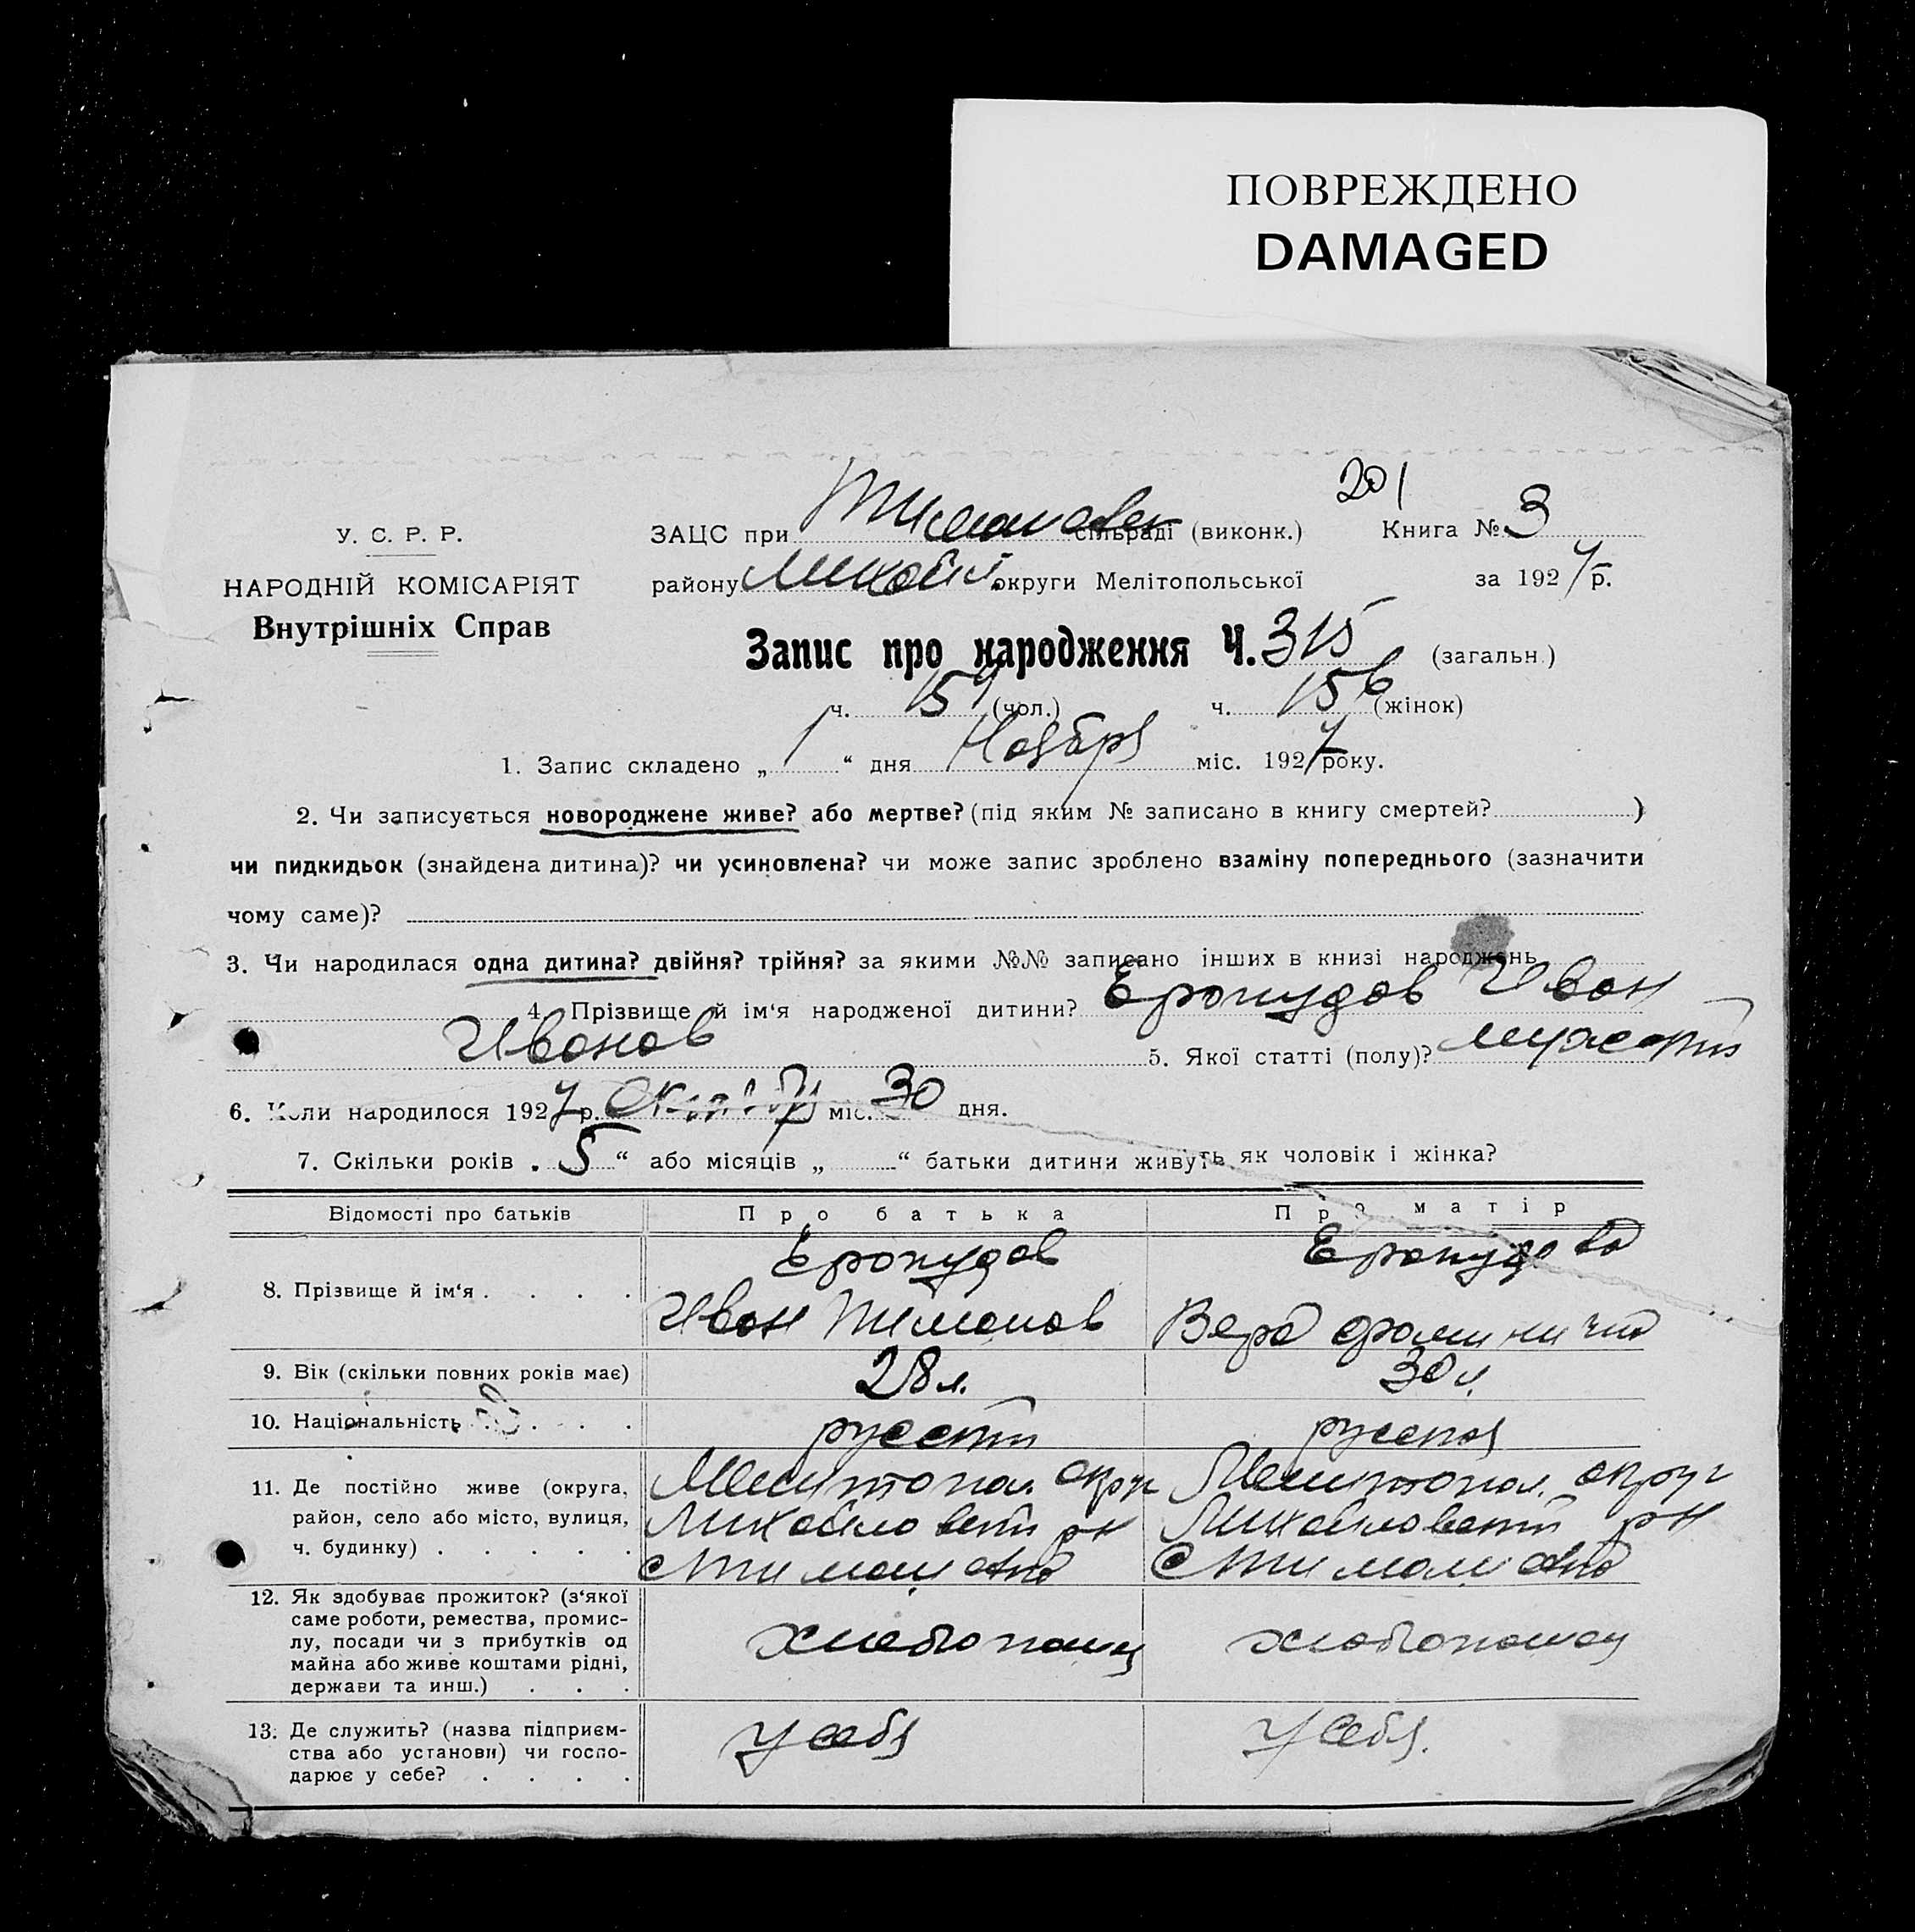 ПОВРЕЖДЕНО
DAMAGED
201
У. С. Р. Р.
ЗАЦС при Тимошовск сільраді (виконк.) Книга № 3
НАРОДНІЙ КОМІСАРІЯТ
району Михайл. округи Мелітопольської за 1927 р.
Внутрішніх Справ
Запис про народження Ч. 315 (загальн.)
ч. 159 (чол.) ч. 156 (жінок)
1. Запис складено „ 1 “ дня Ноября міс. 1927 року.
2. Чи записується новороджене живе? або мертве? (під яким № записано в книгу смертей? )
чи пидкидьок (знайдена дитина)? чи усиновлена? чи може запис зроблено взаміну попереднього (зазначити
чому саме)?
3. Чи народилася одна дитина? двійня? трійня? за якими №№ записано інших в книзі народжень
4. Прізвище й ім‘я народженої дитини? Ерокудов Иван
Иванов 5. Якої статті (полу)? мужск
6. Коли народилося 1927 р. Октябр міс. 30 дня.
7. Скільки років „ 5 “ або місяців „ “ батьки дитини живуть як чоловік і жінка?
Відомості про батьків Про батька Про матір
8. Прізвище й ім‘я . . . . Ерокудов Ерокудова
Иван Тимонов Вера
9. Вік (скільки повних років має) 28 л. 30 л.
10. Національність . . . . русский русская
11. Де постійно живе (округа, Мелитопол. окру Мелитопол. округ
район, село або місто, вулиця, Михайловский рн Михайловский рн
ч. будинку) . . . . . с Тимошовка с Тимошовка
12. Як здобуває прожиток? (з‘якої
саме роботи, ремества, промис-
лу, посади чи з прибутків од хлебопашц хлебопашец
майна або живе коштами рідні,
держави та инш.) . . .
13. Де служить? (назва підприєм- у себя у себя.
ства або установи) чи госпо-
дарює у себе? . . . .